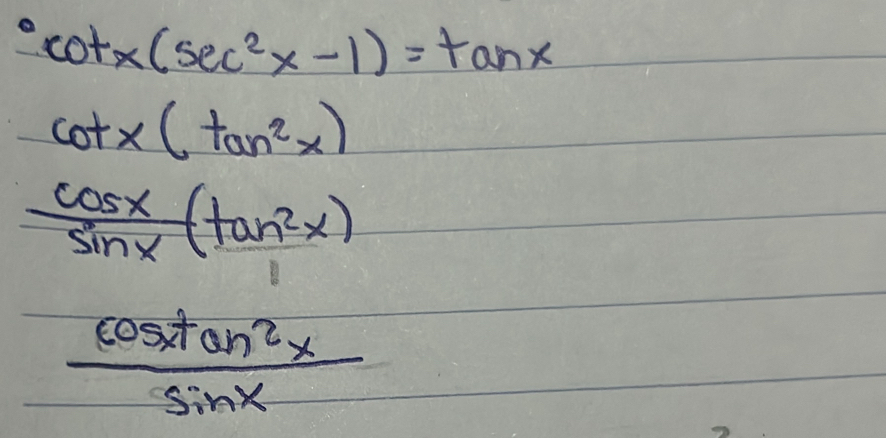 • cotx(sec²x-1)=tanx
cotx(tan²x)
cosx
sinx (tan²x)
1
cosxtan²x
sinx